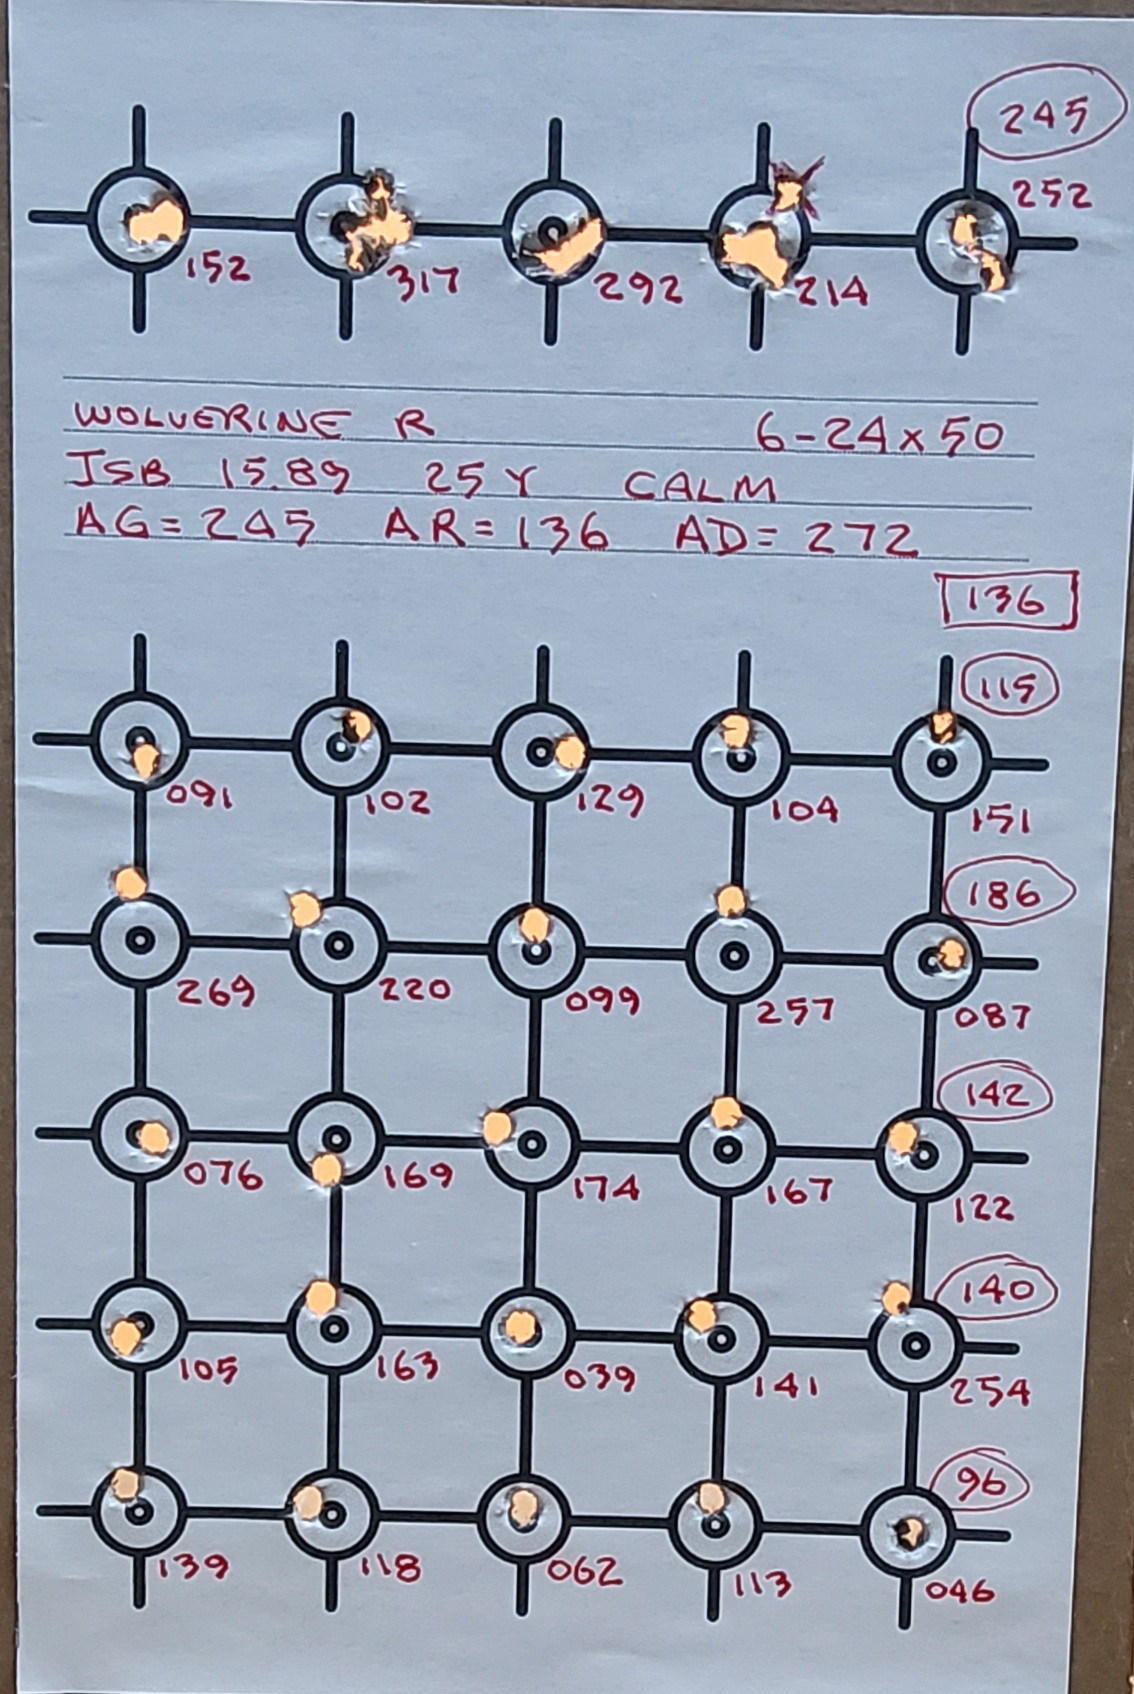 245
152 317 292 214 252
WOLVERINE R 6-24x50
JSB 15.89 25Y CALM
AG=245 AR=136 AD=272
136
115
091 102 129 104 151
186
269 220 099 257 087
142
076 169 174 167 122
140
105 163 039 141 254
96
139 118 062 113 046